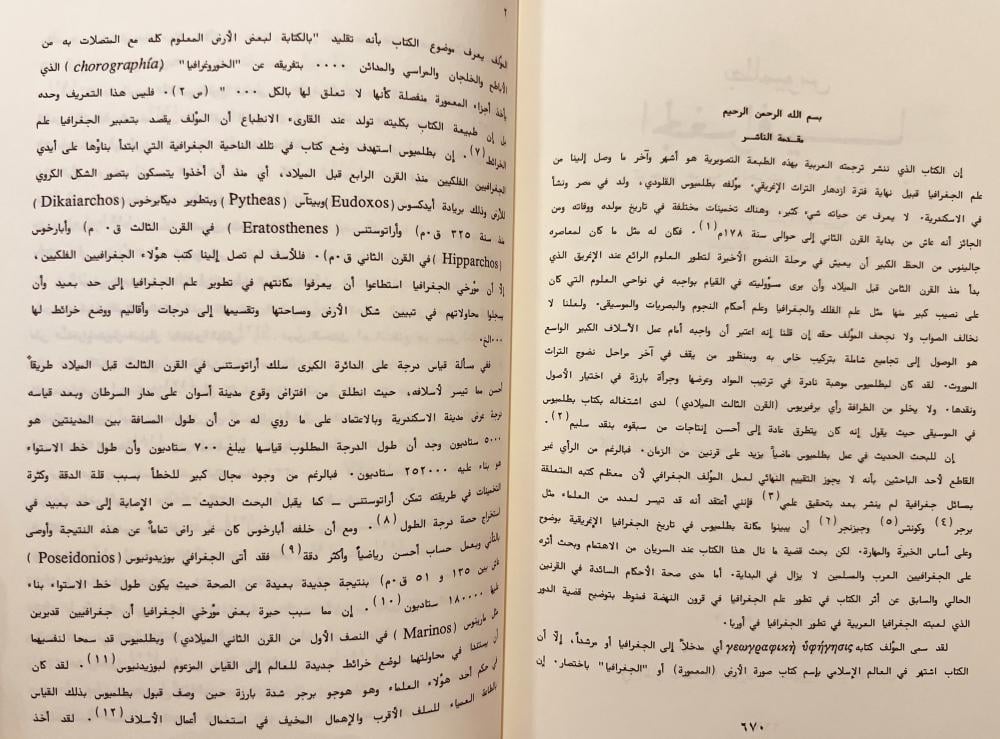 بسم الله الرحمن الرحيم
مقدمة الناشر
إن الكتاب الذي ننشر ترجمته العربية بهذه الطبعة التصويرية هو أشهر وآخر ما وصل إلينا من
علم الجغرافيا قبيل نهاية فترة ازدهار التراث الإغريقي. مؤلفه بطلميوس القلودي، ولد في مصر ونشأ
في الاسكندرية. لا يعرف عن حياته شيء كثير، وهناك تخمينات مختلفة في تاريخ مولده ووفاته ومن
الجائز أنه عاش من بداية القرن الثاني إلى حوالى سنة ١٧٨م(١). فكان له مثل ما كان لمعاصره
جالينوس من الحظ الكبير أن يعيش في مرحلة النضوج الأخيرة لتطور العلوم الرائع عند الإغريق الذي
بدأ منذ القرن الثامن قبل الميلاد وأن يرى مسؤوليته في القيام بواجبه في نواحي العلوم التي كان
على نصيب كبير منها مثل علم الفلك والجغرافيا وعلم أحكام النجوم والبصريات والموسيقى. ولعلنا لا
نخالف الصواب ولا نجحف المؤلف حقه إن قلنا إنه اعتبر أن واجبه أمام عمل الأسلاف الكبير الواسع
هو الوصول إلى تجاميع شاملة بتركيب خاص به وبمنظور من يقف في آخر مراحل نضوج التراث
الموروث. لقد كان لبطلميوس موهبة نادرة في ترتيب المواد وعرضها وجرأة بارزة في اختيار الأصول
ونقدها. ولا يخلو من الطرافة رأي برفيريوس (القرن الثالث الميلادي) لدى اشتغاله بكتاب بطلميوس
في الموسيقى حيث يقول إنه كان يتطرق عادة إلى أحسن إنتاجات من سبقوه بنقد سليم(٢).
إن للبحث الحديث في عمل بطلميوس ماضياً يزيد على قرنين من الزمان. فبالرغم من الرأي غير
القاطع لأحد الباحثين بأنه لا يجوز التقييم النهائي لعمل المؤلف الجغرافي لأن معظم كتبه المتعلقة
بسائل جغرافية لم ينشر بعد بتحقيق علمي(٣) فإنني أعتقد أنه قد تيسر لعدد من العلماء مثل
برجر(٤) وكونتشر(٥) وجيزنجر(٦) أن يبينوا مكانة بطلميوس في تاريخ الجغرافيا الإغريقية بوضوح
وعلى أساس الخبرة والمهارة. لكن بحث قضية ما نال هذا الكتاب عند السريان من الاهتمام وبحث أثره
على الجغرافيين العرب والمسلمين لا يزال في البداية. أما مدى صحة الأحكام السائدة في القرنين
الحالي والسابق عن أثر الكتاب في تطور علم الجغرافيا في قرون النهضة فمنوط بتوضيح قضية الدور
الذي لعبته الجغرافيا العربية في تطور الجغرافيا في أوربا.
لقد سمى المؤلف كتابه γεωγραφικὴ ὑφήγησις أي مدخلاً إلى الجغرافيا أو مرشداً، إلّا أن
الكتاب اشتهر في العالم الإسلامي بإسم كتاب صورة الأرض (المعمورة) أو "الجغرافيا" باختصار. إن
٦٧٠
٢
المؤلف يعرف موضوع الكتاب بأنه تقليد "بالكتابة لبعض الأرض المعلوم كله مع المتصلات به من
والخلجان والمراسي والمدائن ٠٠٠٠ بتفريقه عن "الخوروغرافيا" (chorographía) الذي
يأخذ أجزاء المعمورة منفصلة كأنها لا تعلق لها بالكل ٠٠٠ " (ص ٢). فليس هذا التعريف وحده
بل إن طبيعة الكتاب بكليته تولد عند القارىء الانطباع أن المؤلف يقصد بتعبير الجغرافيا علم
الخرائط(٧). إن بطلميوس استهدف وضع كتاب في تلك الناحية الجغرافية التي ابتدأ بناؤها على أيدي
الجغرافيين الفلكيين منذ القرن الرابع قبل الميلاد، أي منذ أن أخذوا يتسكون بتصور الشكل الكروي
للأرض وذلك بريادة أيدكسوس (Eudoxos) وبيتآس (Pytheas) وبتطوير ديكايرخوس (Dikaiarchos)
منذ سنة ٣٢٥ ق٠م) وأراتوستنس ( Eratosthenes ) في القرن الثالث ق٠ م) وأبارخوس
(Hipparchos) في القرن الثاني ق٠م). فللأسف لم تصل إلينا كتب هؤلاء الجغرافيين الفلكيين،
إلا أن مؤرخي الجغرافيا استطاعوا أن يعرفوا مكانتهم في تطوير علم الجغرافيا إلى حد بعيد وأن
يسجلوا محاولاتهم في تبيين شكل الأرض ومساحتها وتقسيمها إلى درجات وأقاليم ووضع خرائط لها
٠٠٠الخ٠
ففي مسألة قياس درجة على الدائرة الكبرى سلك أراتوستنس في القرن الثالث قبل الميلاد طريقاً
أحسن مما تيسر لأسلافه، حيث انطلق من افتراض وقوع مدينة أسوان على مدار السرطان وبعد قياسه
درجة عرض مدينة الاسكندرية وبالاعتماد على ما روي له من أن طول المسافة بين المدينتين هو
٥٠٠٠ ستاديون وجد أن طول الدرجة المطلوب قياسها يبلغ ٧٠٠ ستاديون وأن طول خط الاستواء
هو بناء عليه ٢٥٢٠٠٠ ستاديون. فبالرغم من وجود مجال كبير للخطأ بسبب قلة الدقة وكثرة
التخمينات في طريقته تمكن أراتوستنس ــ كما يقبل البحث الحديث ــ من الإصابة إلى حد بعيد في
استخراج حصة درجة الطول(٨). ومع أن خلفه أبارخوس كان غير راض تماماً عن هذه النتيجة وأوصى
بالتأني وبعمل حساب أحسن رياضياً وأكثر دقة(٩) فقد أتى الجغرافي بوزيدونيوس (Poseidonios)
بين ١٣٥ و ٥١ ق٠م) بنتيجة جديدة بعيدة عن الصحة حيث يكون طول خط الاستواء بناء
١٨٠٠٠٠ ستاديون(١٠). إن مما سبب حيرة بعض مؤرخي الجغرافيا أن جغرافيين قديرين
مثل مارينوس (Marinos) في النصف الأول من القرن الثاني الميلادي) وبطلميوس قد سمحا لنفسيهما
أن يستندا في محاولتهما لوضع خرائط جديدة للعالم إلى القياس المزعوم لبوزيدنيوس(١١). لقد كان
حكم أحد هؤلاء العلماء وهو هوجو برجر شدة بارزة حين وصف قبول بطلميوس بذلك القياس
العمياء للسلف الأقرب والإهمال المخيف في استعمال أعمال الأسلاف(١٢). لقد أخذ